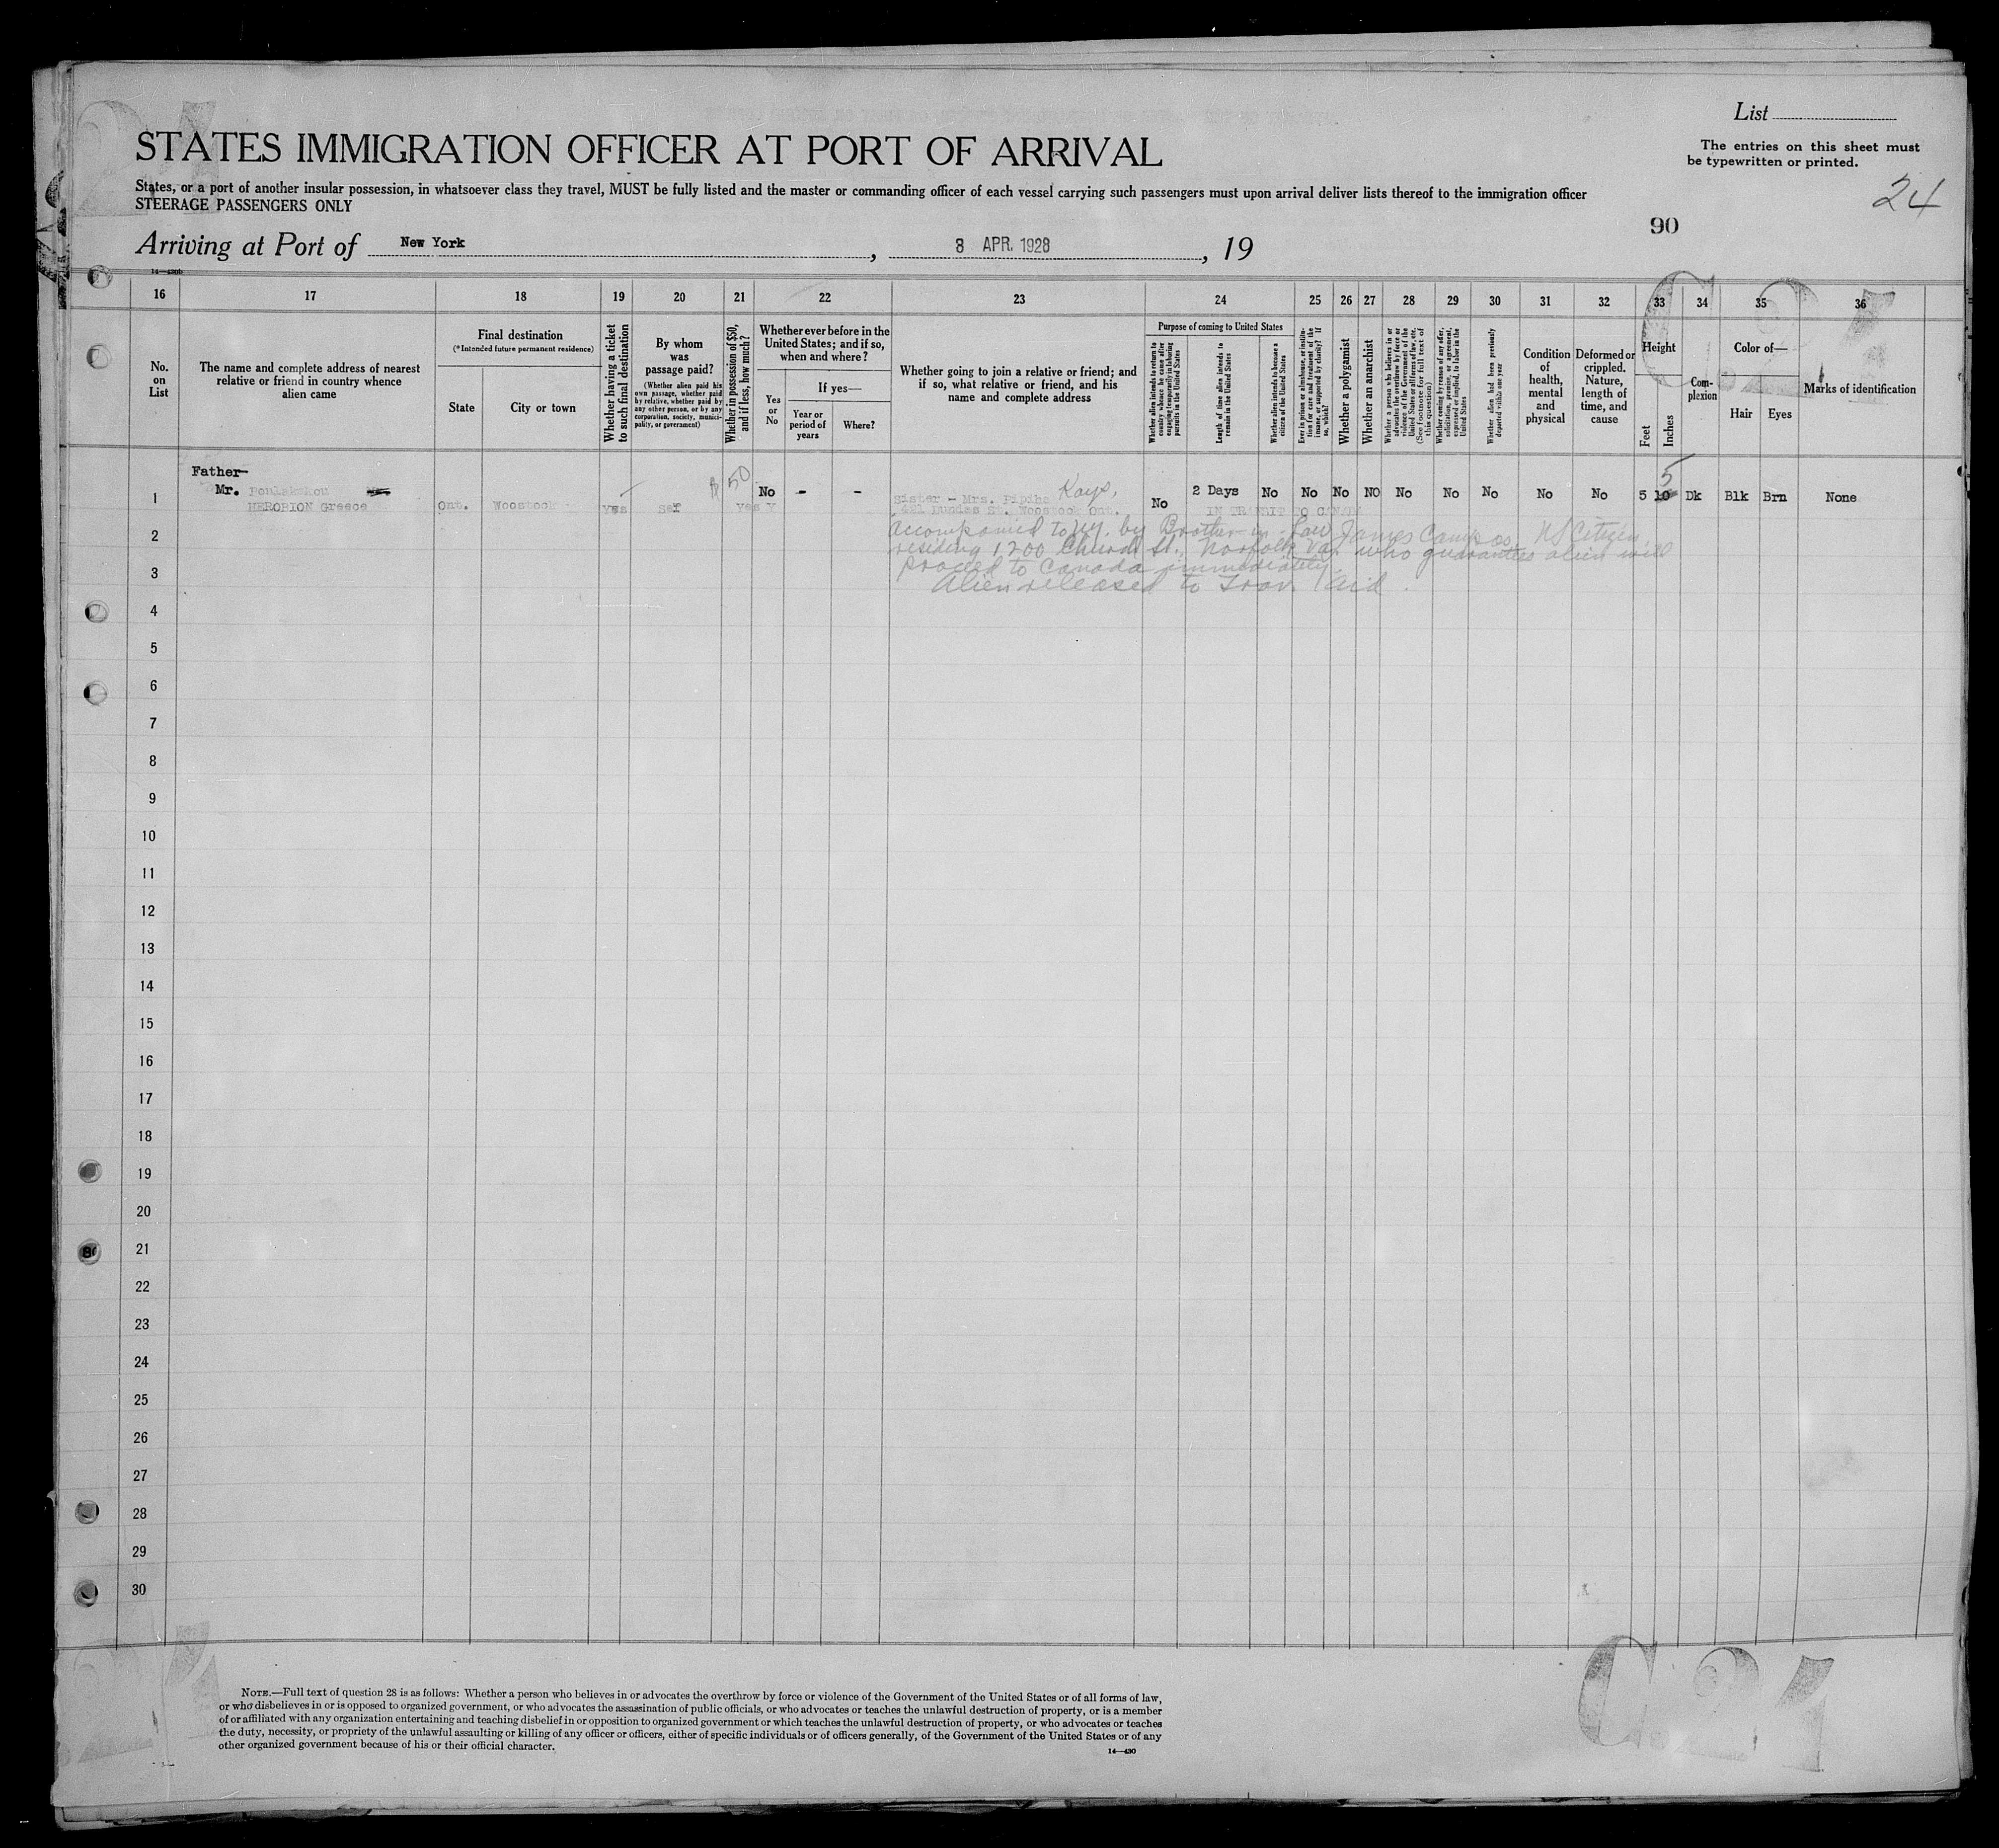 List
The entries on this sheet must
be typewritten or printed.
STATES IMMIGRATION OFFICER AT PORT OF ARRIVAL
States, or a port of another insular possession, in whatsoever class they travel, MUST be fully listed and the master or commanding officer of each vessel carrying such passengers must upon arrival deliver lists thereof to the immigration officer
STEERAGE PASSENGERS ONLY
24
90
Arriving at Port of New York, 8 APR. 1928, 19
14—430b
16 17 18 19 20 21 22 23 24 25 26 27 28 29 30 31 32 33 34 35 36
No.
on
List
The name and complete address of nearest
relative or friend in country whence
alien came
Final destination
(*Intended future permanent residence)
State
City or town
Whether having a ticket
to such final destination
By whom
was
passage paid?
(Whether alien paid his
own passage, whether paid
by relative, whether paid by
any other person, or by any
corporation, society, munici-
pality, or government)
Whether in possession of $50,
and if less, how much?
Whether ever before in the
United States; and if so,
when and where?
Yes
or
No
If yes—
Year or
period of
years
Where?
Whether going to join a relative or friend; and
if so, what relative or friend, and his
name and complete address
Purpose of coming to United States
Whether alien intends to return to
country whence he came after
engaging temporarily in laboring
pursuits in the United States
Length of time alien intends to
remain in the United States
Whether alien intends to become a
citizen of the United States
Ever in prison or almshouse, or institu-
tion for care and treatment of the
insane, or supported by charity? If
so, which?
Whether a polygamist
Whether an anarchist
Whether a person who believes in or
advocates the overthrow by force or
violence of the Government of the
United States or all forms of law, etc.
(See footnote for full text of
this question)
Whether coming by reason of any offer,
solicitation, promise, or agreement,
expressed or implied, to labor in the
United States
Whether alien had been previously
deported within one year
Condition
of
health,
mental
and
physical
Deformed or
crippled.
Nature,
length of
time, and
cause
Height
Feet
Inches
Com-
plexion
Color of—
Hair
Eyes
Marks of identification
Father-
1 Mr. Poulakakou Ont. Woostock Yes Self $50 No - - Sister - Mrs. Pipiha Kays, No 2 Days No No No NO No No No No No 5 10 5 Dk Blk Brn None
HEROBION Greece Yes 421 Dundas St. Woostock Ont. IN TRANSIT TO CANADA
2 accompanied to NY. by Brother-in-Law James Campas, US Citizen
residing 1200 Church St., Norfolk Va. who guarantees alien will
3 proceed to Canada immediately.
Alien released to Trav. Aid.
4
5
6
7
8
9
10
11
12
13
14
15
16
17
18
19
20
21
22
23
24
25
26
27
28
29
30
C 21
NOTE.—Full text of question 28 is as follows: Whether a person who believes in or advocates the overthrow by force or violence of the Government of the United States or of all forms of law,
or who disbelieves in or is opposed to organized government, or who advocates the assassination of public officials, or who advocates or teaches the unlawful destruction of property, or is a member
of or affiliated with any organization entertaining and teaching disbelief in or opposition to organized government or which teaches the unlawful destruction of property, or who advocates or teaches
the duty, necessity, or propriety of the unlawful assaulting or killing of any officer or officers, either of specific individuals or of officers generally, of the Government of the United States or of any
other organized government because of his or their official character.
14—430